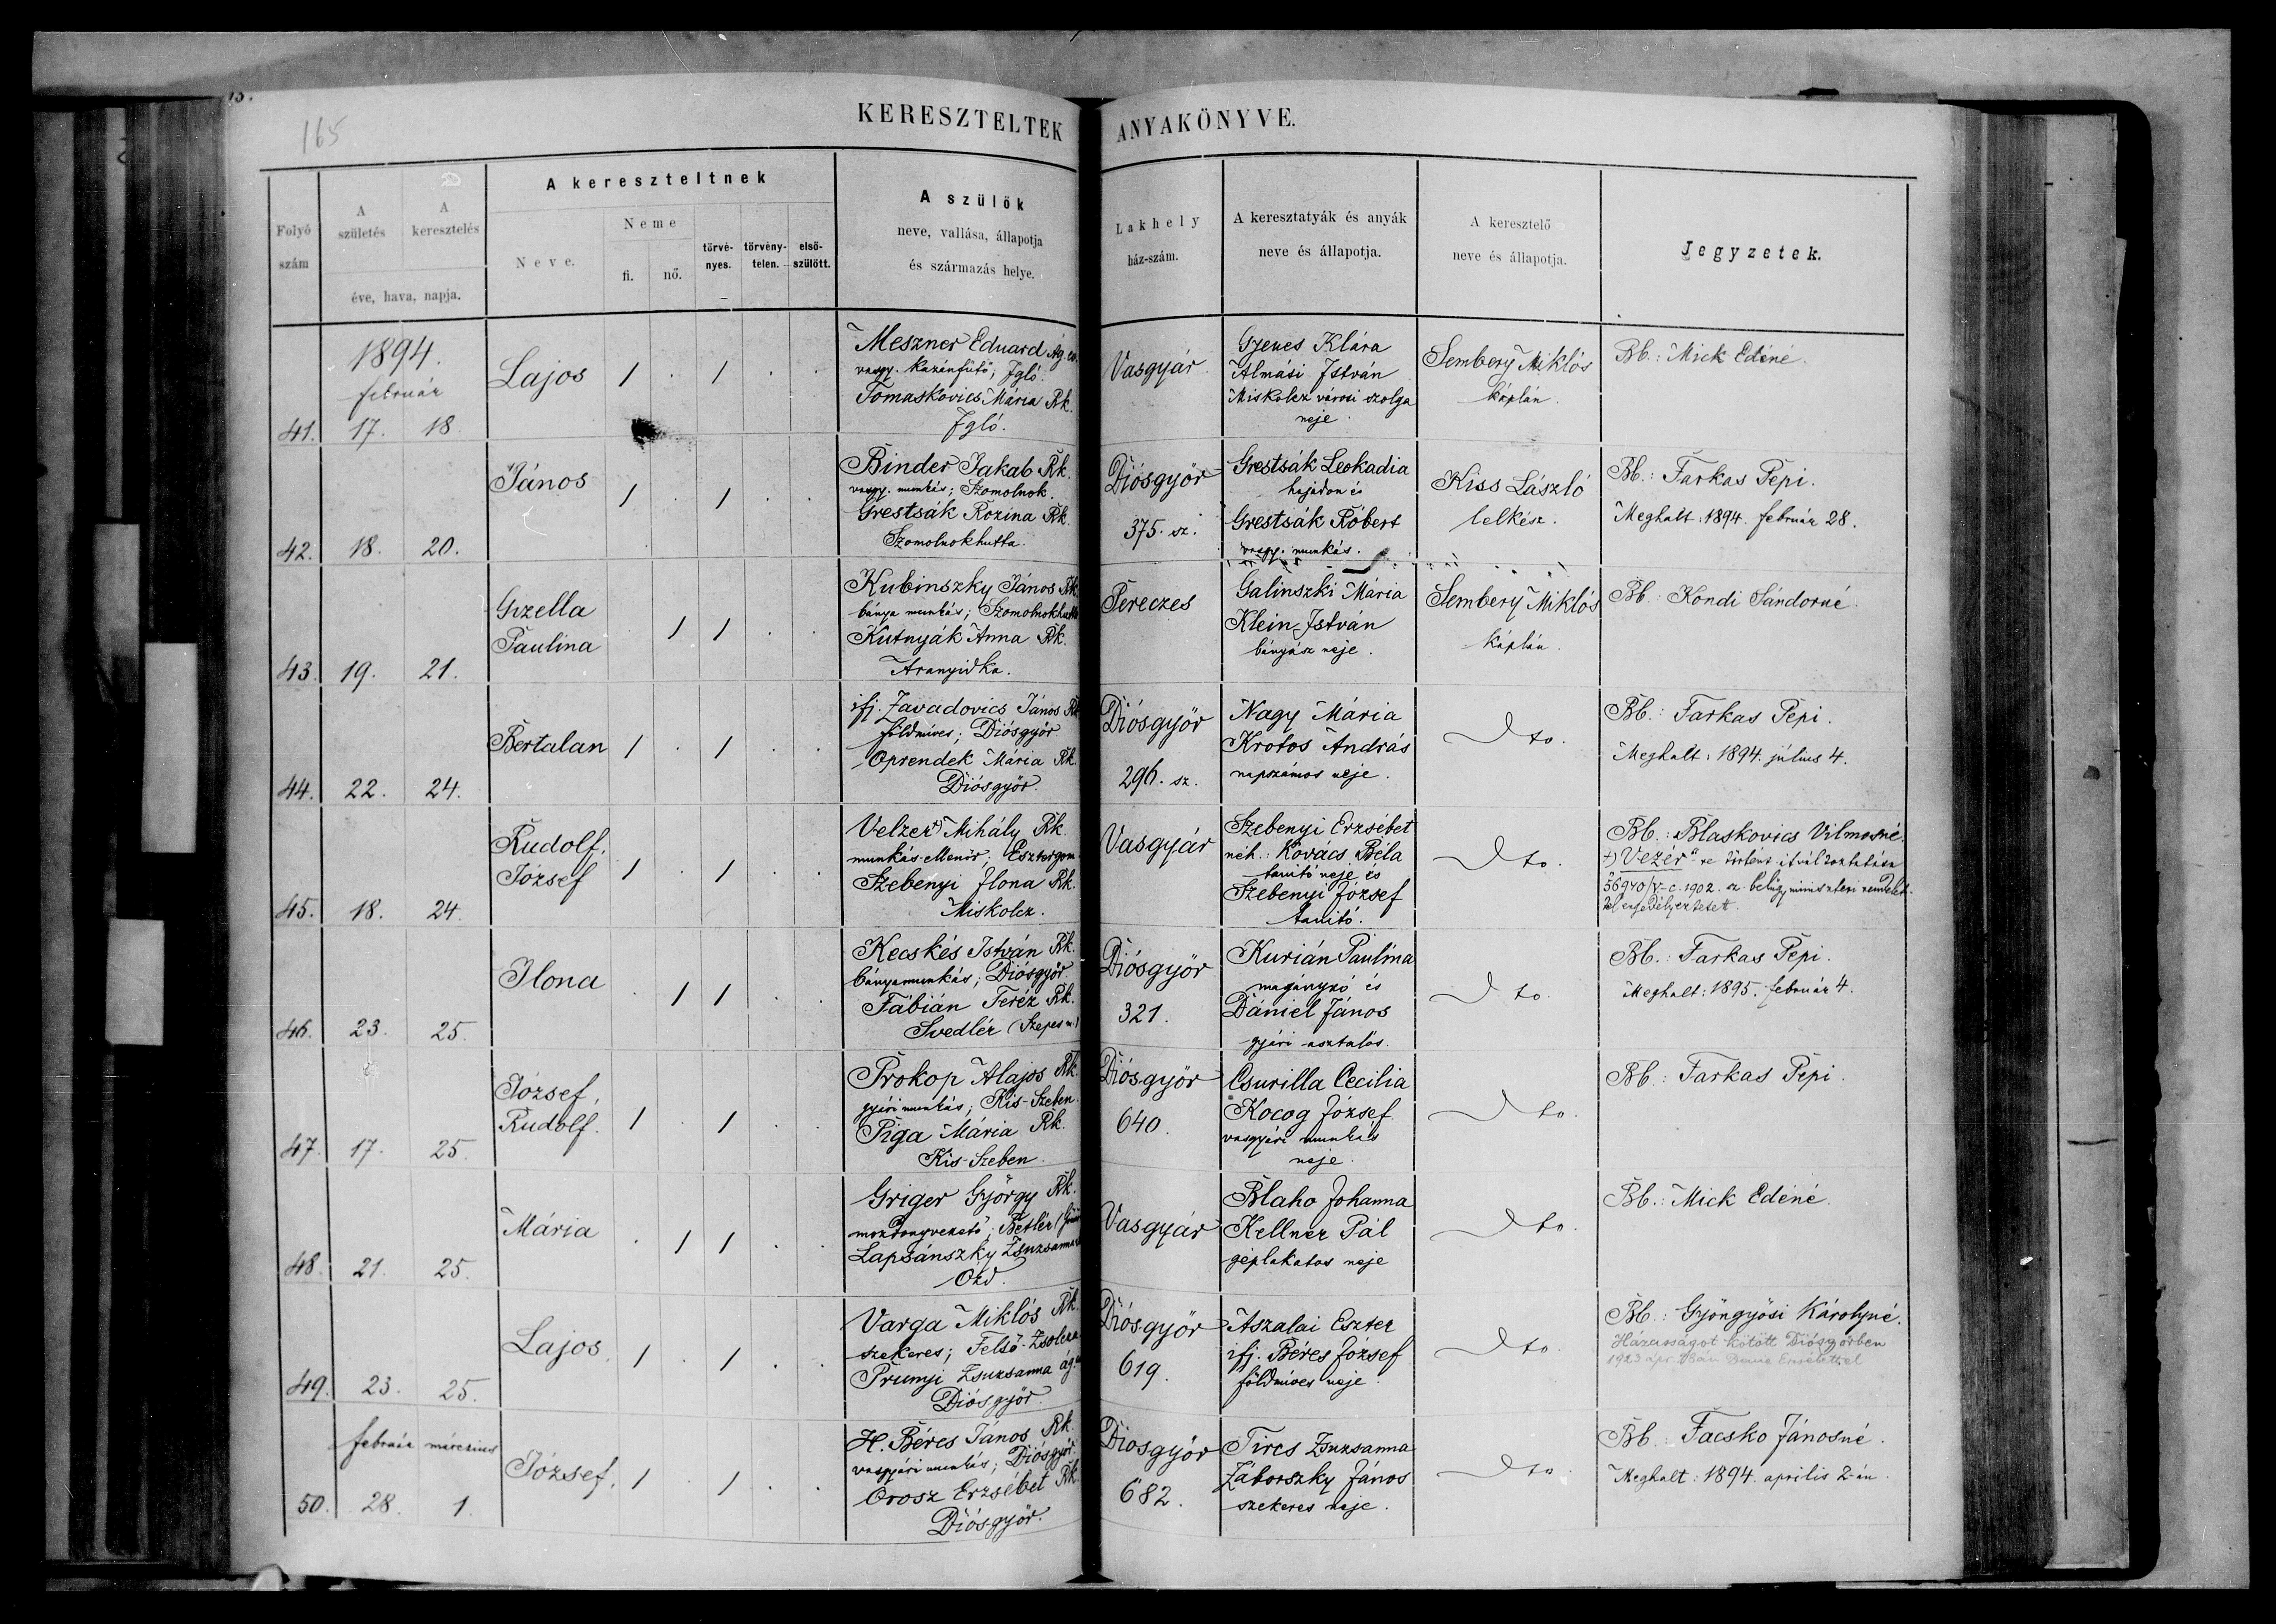 165
KERESZTELTEK ANYAKÖNYVE.
Folyó szám
A születés
A keresztelés
éve, hava, napja.
A kereszteltnek
Neve.
Neme
fi.
nő.
törvé-nyes.
törvény-telen.
első-szülött.
A szülők
neve, vallása, állapotja
és származás helye.
Lakhely
ház-szám.
A keresztatyák és anyák
neve és állapotja.
A keresztelő
neve és állapotja.
Jegyzetek.
1894.
február
41. 17. 18.
Lajos 1 . 1 . .
Meszner Eduard Ág. ev.
vasgy. kazánfűtő; Igló.
Tomaskovics Mária Rk.
Igló.
Vasgyár
Gyenes Klára
Almási István
Miskolcz városi szolga
neje.
Sembery Miklós
káplán.
Bb.: Mick Edéné.
42. 18. 20.
János 1 . 1 . .
Binder Jakab Rk.
vasgy. munkás; Szomolnok.
Grestsák Rozina Rk.
Szomolnokhutta.
Diósgyőr
375. sz.
Grestsák Leokadia
hajadon és
Grestsák Róbert
vasgy. munkás.
Kiss László
lelkész.
Bb.: Farkas Pepi.
Meghalt: 1894. február 28.
43. 19. 21.
Gizella
Paulina
1 1 . .
Kubinszky János Rk.
bánya munkás; Szomolnokhutta
Kutnyák Anna Rk.
Aranyidka.
Pereczes
Galinszki Mária
Klein István
bányász neje.
Sembery Miklós
káplán.
Bb.: Kondi Sándorné.
44. 22. 24.
Bertalan 1 . 1 . .
ifj. Zavadovics János Rk
földmíves; Diósgyőr
Oprendek Mária Rk.
Diósgyőr.
Diósgyőr
296. sz.
Nagy Mária
Krotos András
napszámos neje.
Dto.
Bb.: Farkas Pepi.
Meghalt: 1894. július 4.
45. 18. 24.
Rudolf,
József
1 . 1 . .
Velzer +) Mihály Rk.
munkás Menór; Esztergom
Szebenyi Ilona Rk.
Miskolcz.
Vasgyár
Szebenyi Erzsébet
néh.: Kovács Béla
tanító neje és
Szebenyi József
tanító.
Dto.
Bb.: Blaskovics Vilmosné.
+) "Vezér"-re történt átváltoztatása
56940/V-c. 1902. sz. belügyminiszteri rendelet-
tel engedélyeztetett.
46. 23. 25.
Ilona . 1 1 . .
Kecskés István Rk.
bányamunkás; Diósgyőr
Fábián Teréz Rk.
Svedlér (Szepes m.)
Diósgyőr
321.
Kurián Paulina
magányzó és
Dániel János
gyári asztalos.
Dto.
Bb.: Farkas Pepi.
Meghalt: 1895. február 4.
47. 17. 25.
József,
Rudolf.
1 . 1 . .
Prokop Alajos Rk.
gyári munkás; Kis-Szeben.
Piga Mária Rk.
Kis-Szeben.
Diósgyőr
640.
Csurilla Cecilia
Kocog József
vasgyári munkás
neje.
Dto.
Bb.: Farkas Pepi.
48. 21. 25.
Mária . 1 1 . .
Griger György Rk.
mozdonyvezető; Betlér
Lapsánszky Zsuzsanna
Ózd.
Vasgyár
Blaho Johanna
Kellner Pál
géplakatos neje
Dto.
Bb.: Mick Edéné.
49. 23. 25.
Lajos. 1 . 1 . .
Varga Miklós Rk.
szekeres; Felső-Zsolcza
Prumyi Zsuzsanna ág.
Diósgyőr.
Diósgyőr
619.
Aszalai Eszter
ifj. Béres József
földmíves neje.
Dto.
Bb.: Gyöngyösi Károlyné.
Házasságot kötött Diósgyőrben
1923 Erzsébettel
február márczius
50. 28. 1.
József. 1 . 1 . .
H. Béres János Rk.
vasgyári munkás; Diósgyőr.
Orosz Erzsébet Rk.
Diósgyőr.
Diósgyőr
682.
Tircs Zsuzsanna
Záborszky János
szekeres neje.
Dto.
Bb.: Facsko Jánosné.
Meghalt: 1894. április 2-án.